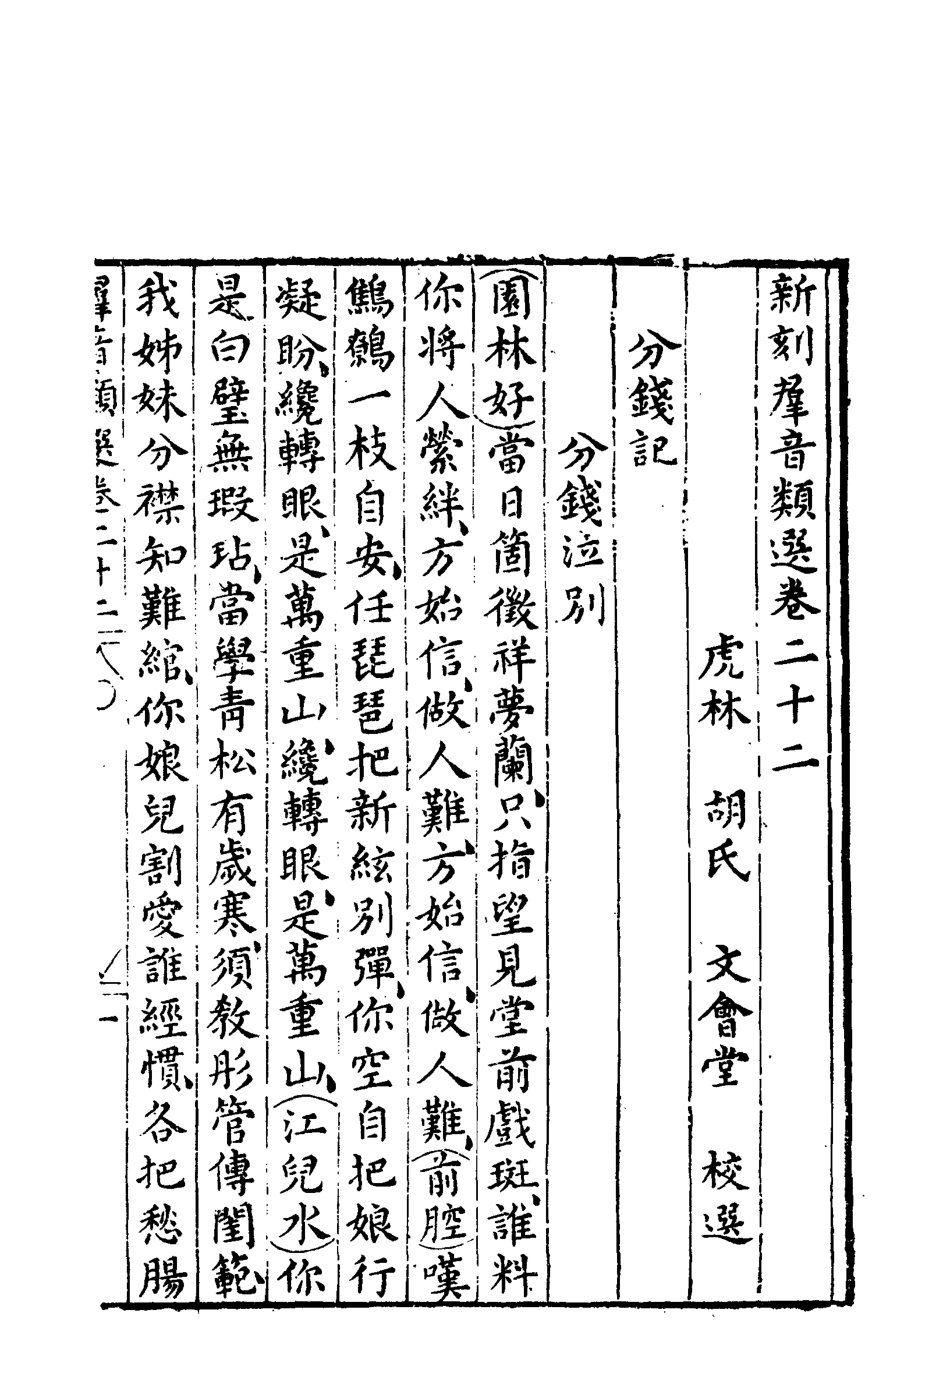 新刻羣音類選卷二十二
虎林　胡氏　文會堂　校選
分錢記
分錢泣別
(園林好)當日箇徵祥夢蘭、只指望見堂前戲斑、誰料
你將人縈絆、方始信、做人難、方始信、做人難、(前腔)嘆
鷦鷯一枝自安、任琵琶把新絃別彈、你空自把娘行
凝盼、纔轉眼、是萬重山、纔轉眼、是萬重山、(江兒水)你
是白璧無瑕玷、當學青松有歲寒、須教彤管傳閨範、
我姊妹分襟知難綰、你娘兒割愛誰經慣、各把愁腸
羣音類選卷二十二　一